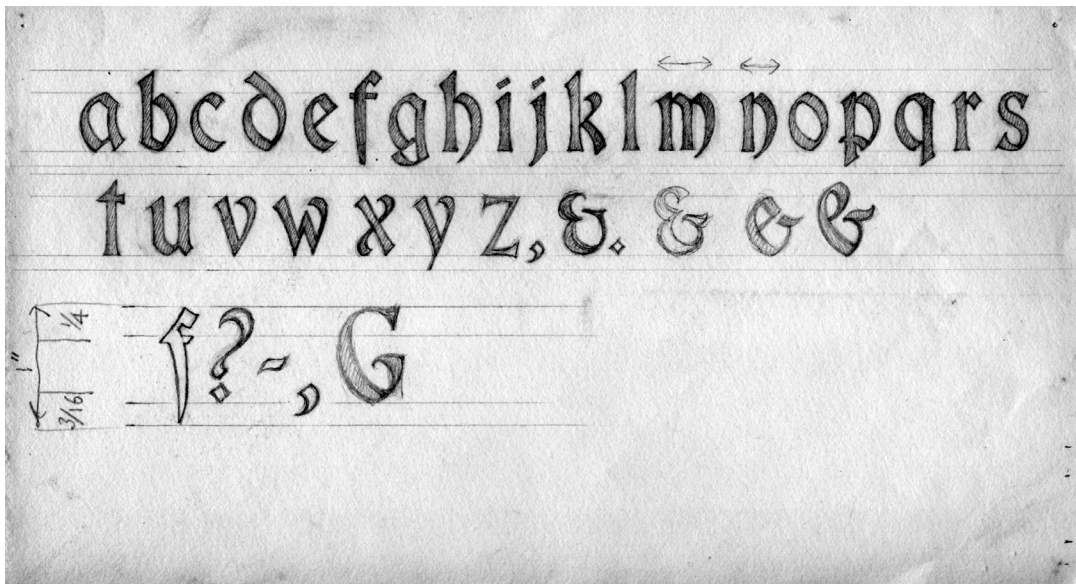 abcdefghijklmnopqrs
tuvwxyz,&.&&&
f?-,G
1"
1/4
3/16